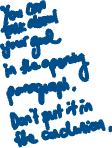 You can
talk about
your goal
in the opening
paragraph.
Don't put it in
the conclusion.